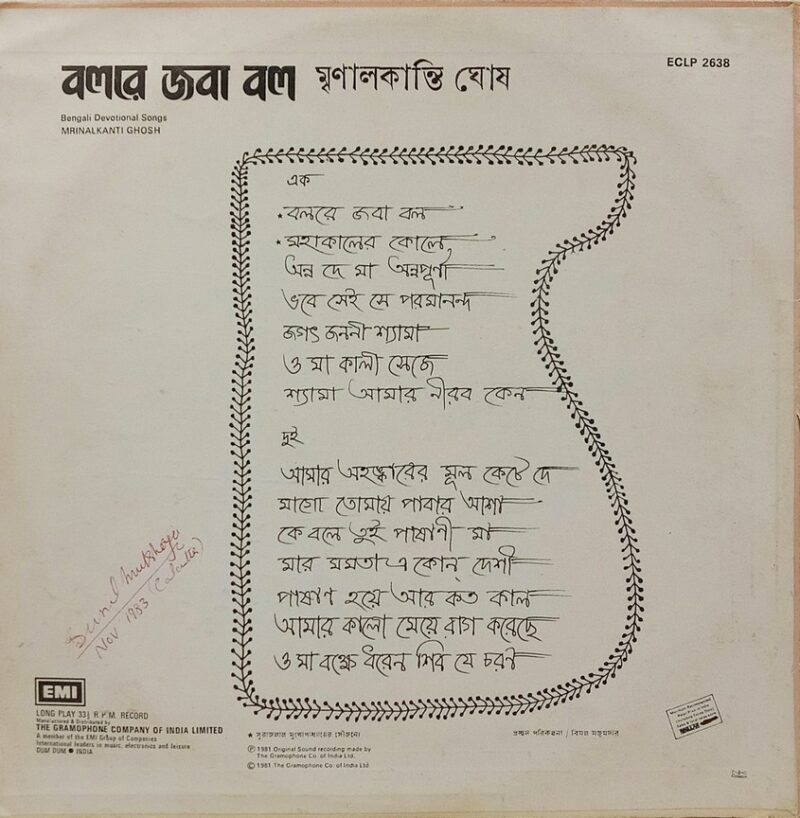 বলরে জবা বল মৃণালকান্তি ঘোষ
ECLP 2638
Bengali Devotional Songs
MRINALKANTI GHOSH
এক
★বলরে জবা বল
★মহাকালের কোলে
অন্ন দে মা অন্নপূর্ণা
ভবে সেই সে পরমানন্দ
জগৎ জননী শ্যামা
ও মা কালী সেজে
শ্যামা আমার নীরব কেন
দুই
আমার অহঙ্কারের মূল কেটে দে
মাগো তোমায় পাবার আশা
কে বলে তুই পাষাণী মা
মার মমতা এ কোন্ দেশী
পাষাণ হয়ে আর কত কাল
আমার কালো মেয়ে রাগ করেছে
ও মা বক্ষে ধরেন শিব যে চরণ
Sunil Mukherjee
Nov 1983 (Calcutta)
EMI
LONG PLAY 33⅓ R.P.M. RECORD
Manufactured & Distributed by
THE GRAMOPHONE COMPANY OF INDIA LIMITED
A member of the EMI Group of Companies
International leaders in music, electronics and leisure
DUM DUM ● INDIA
★ মুখোপাধ্যায়ের সৌজন্যে
Ⓟ 1981 Original Sound recording made by
The Gramophone Co. of India Ltd.
© 1981 The Gramophone Co. of India Ltd.
প্রচ্ছদ পরিকল্পনা / বিমল মজুমদার